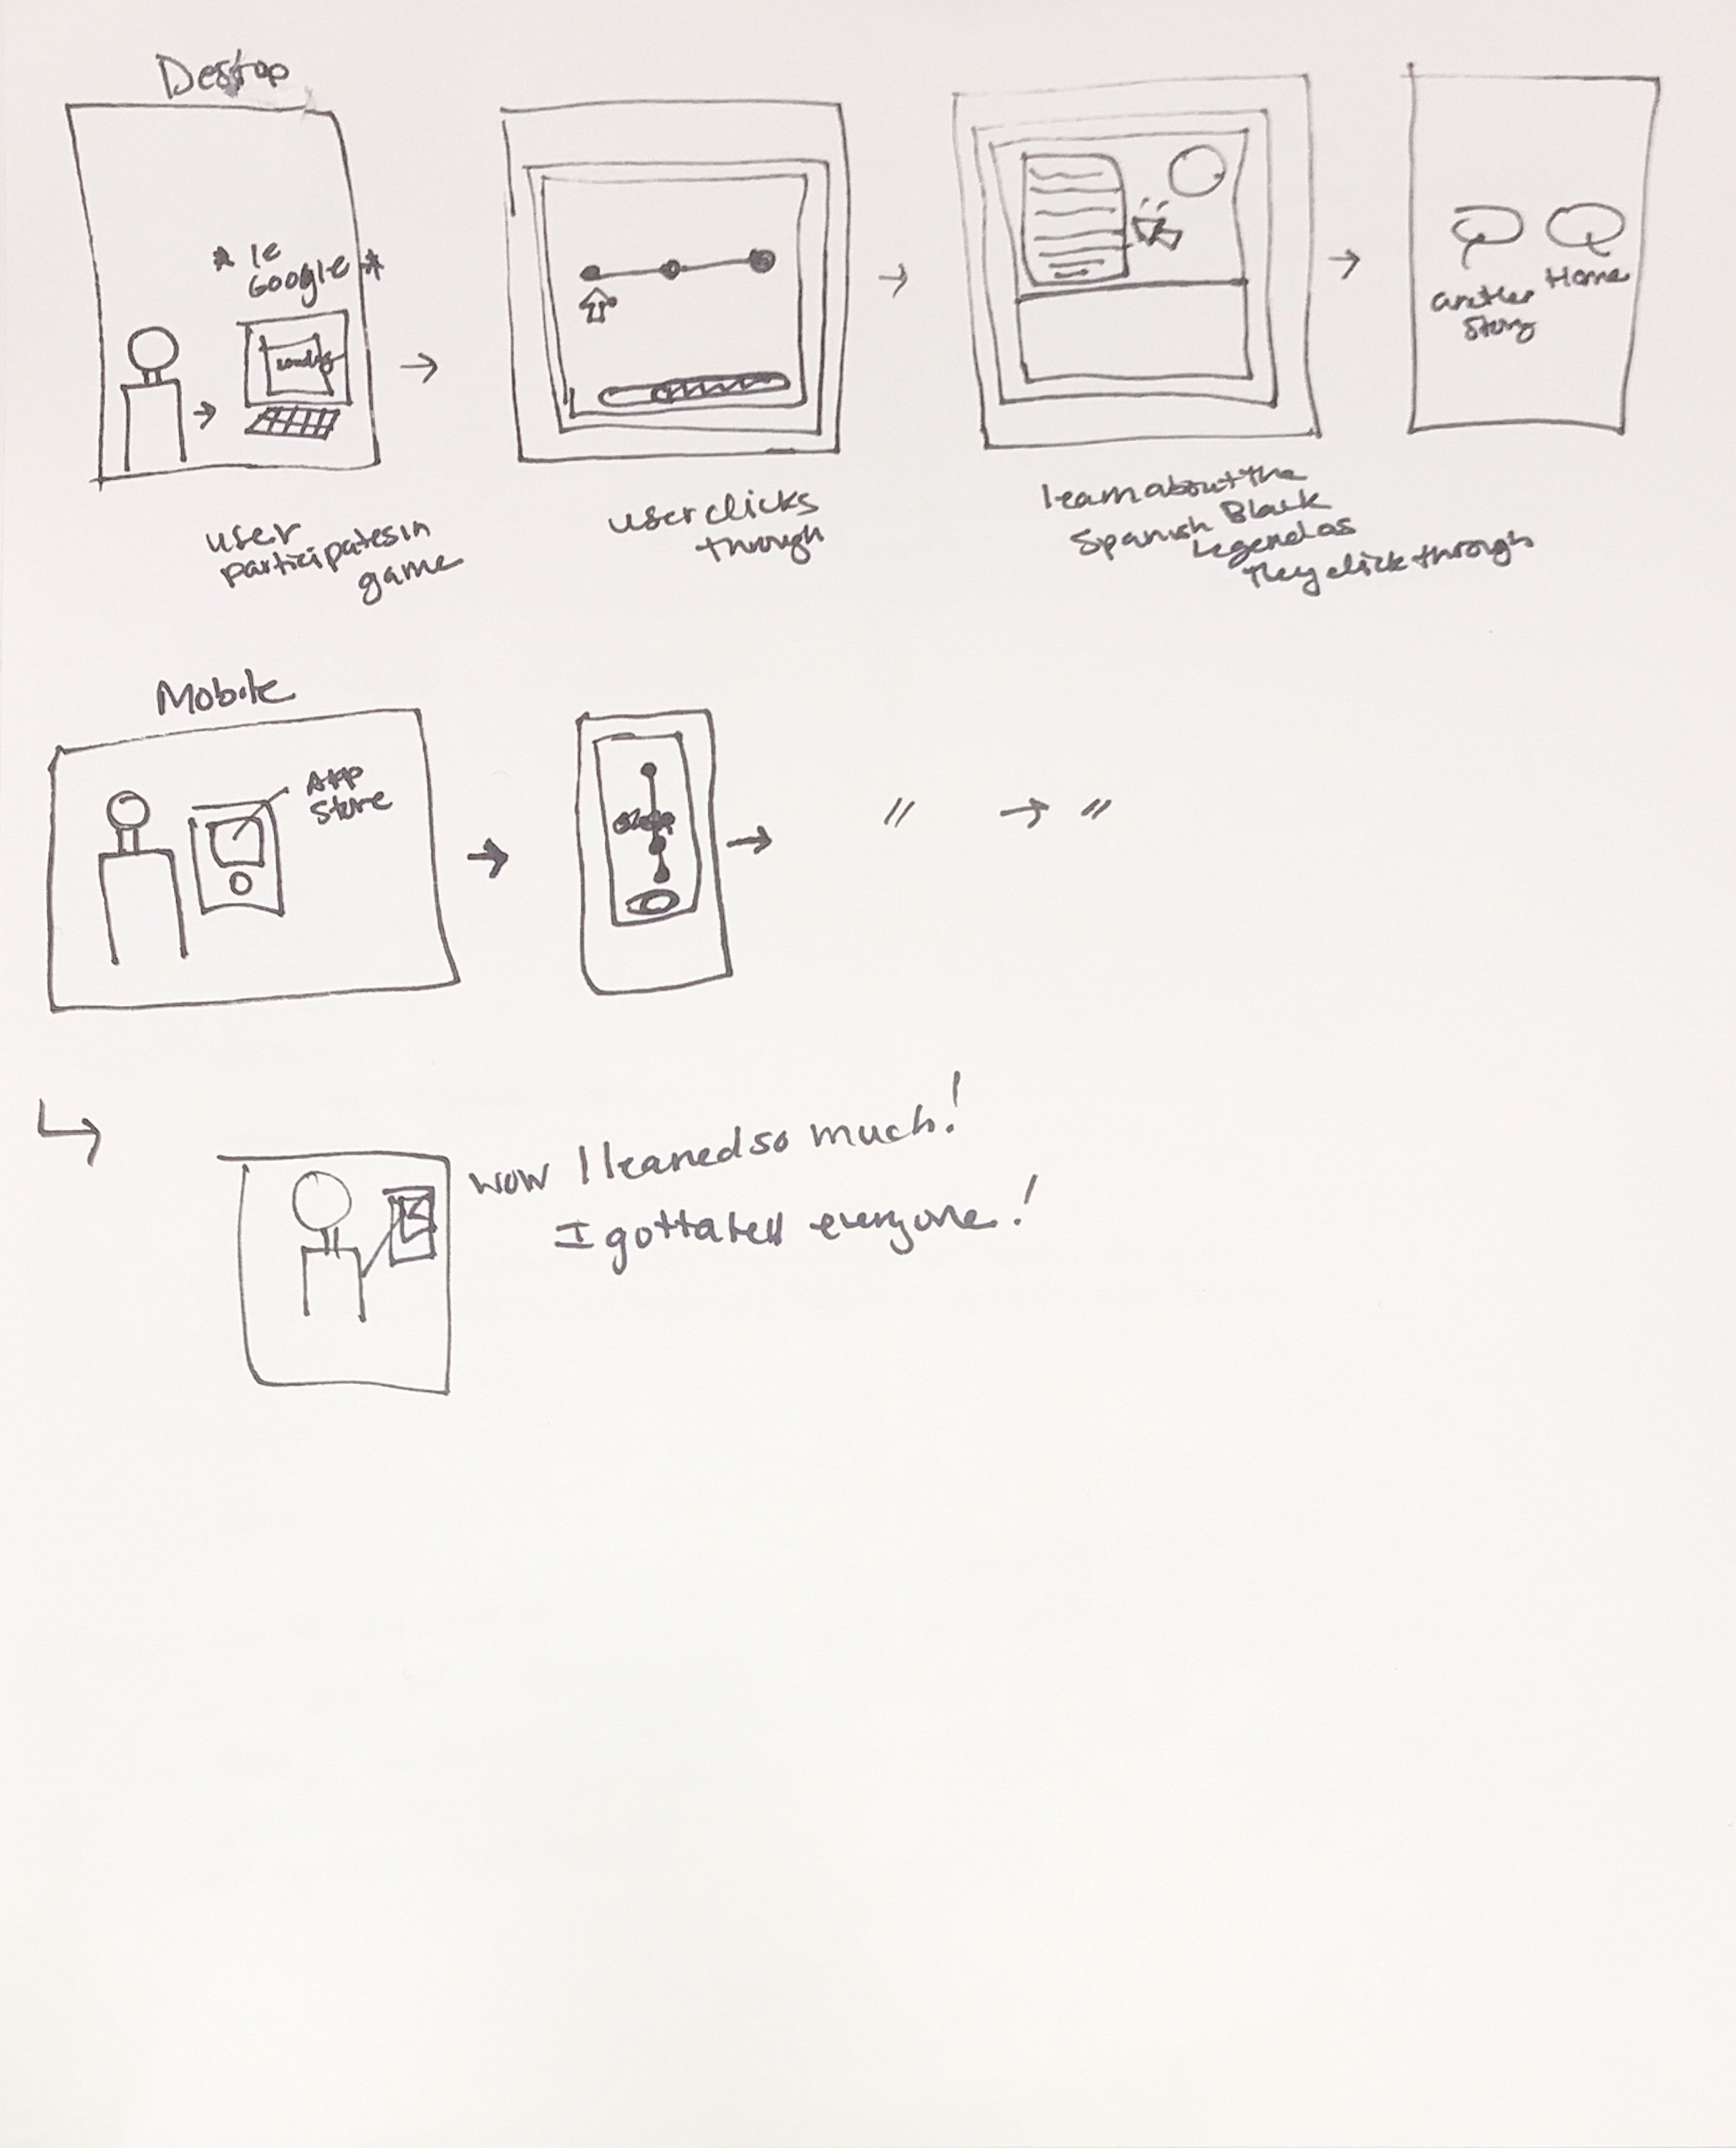 Desktop
* le
Google *
Loading
user
participates in
game
user clicks
through
learn about the
Spanish Black
Legend as
they click through
another
Story
Home
Mobile
App
Store
"
"
wow I leaned so much!
I gotta tell everyone!